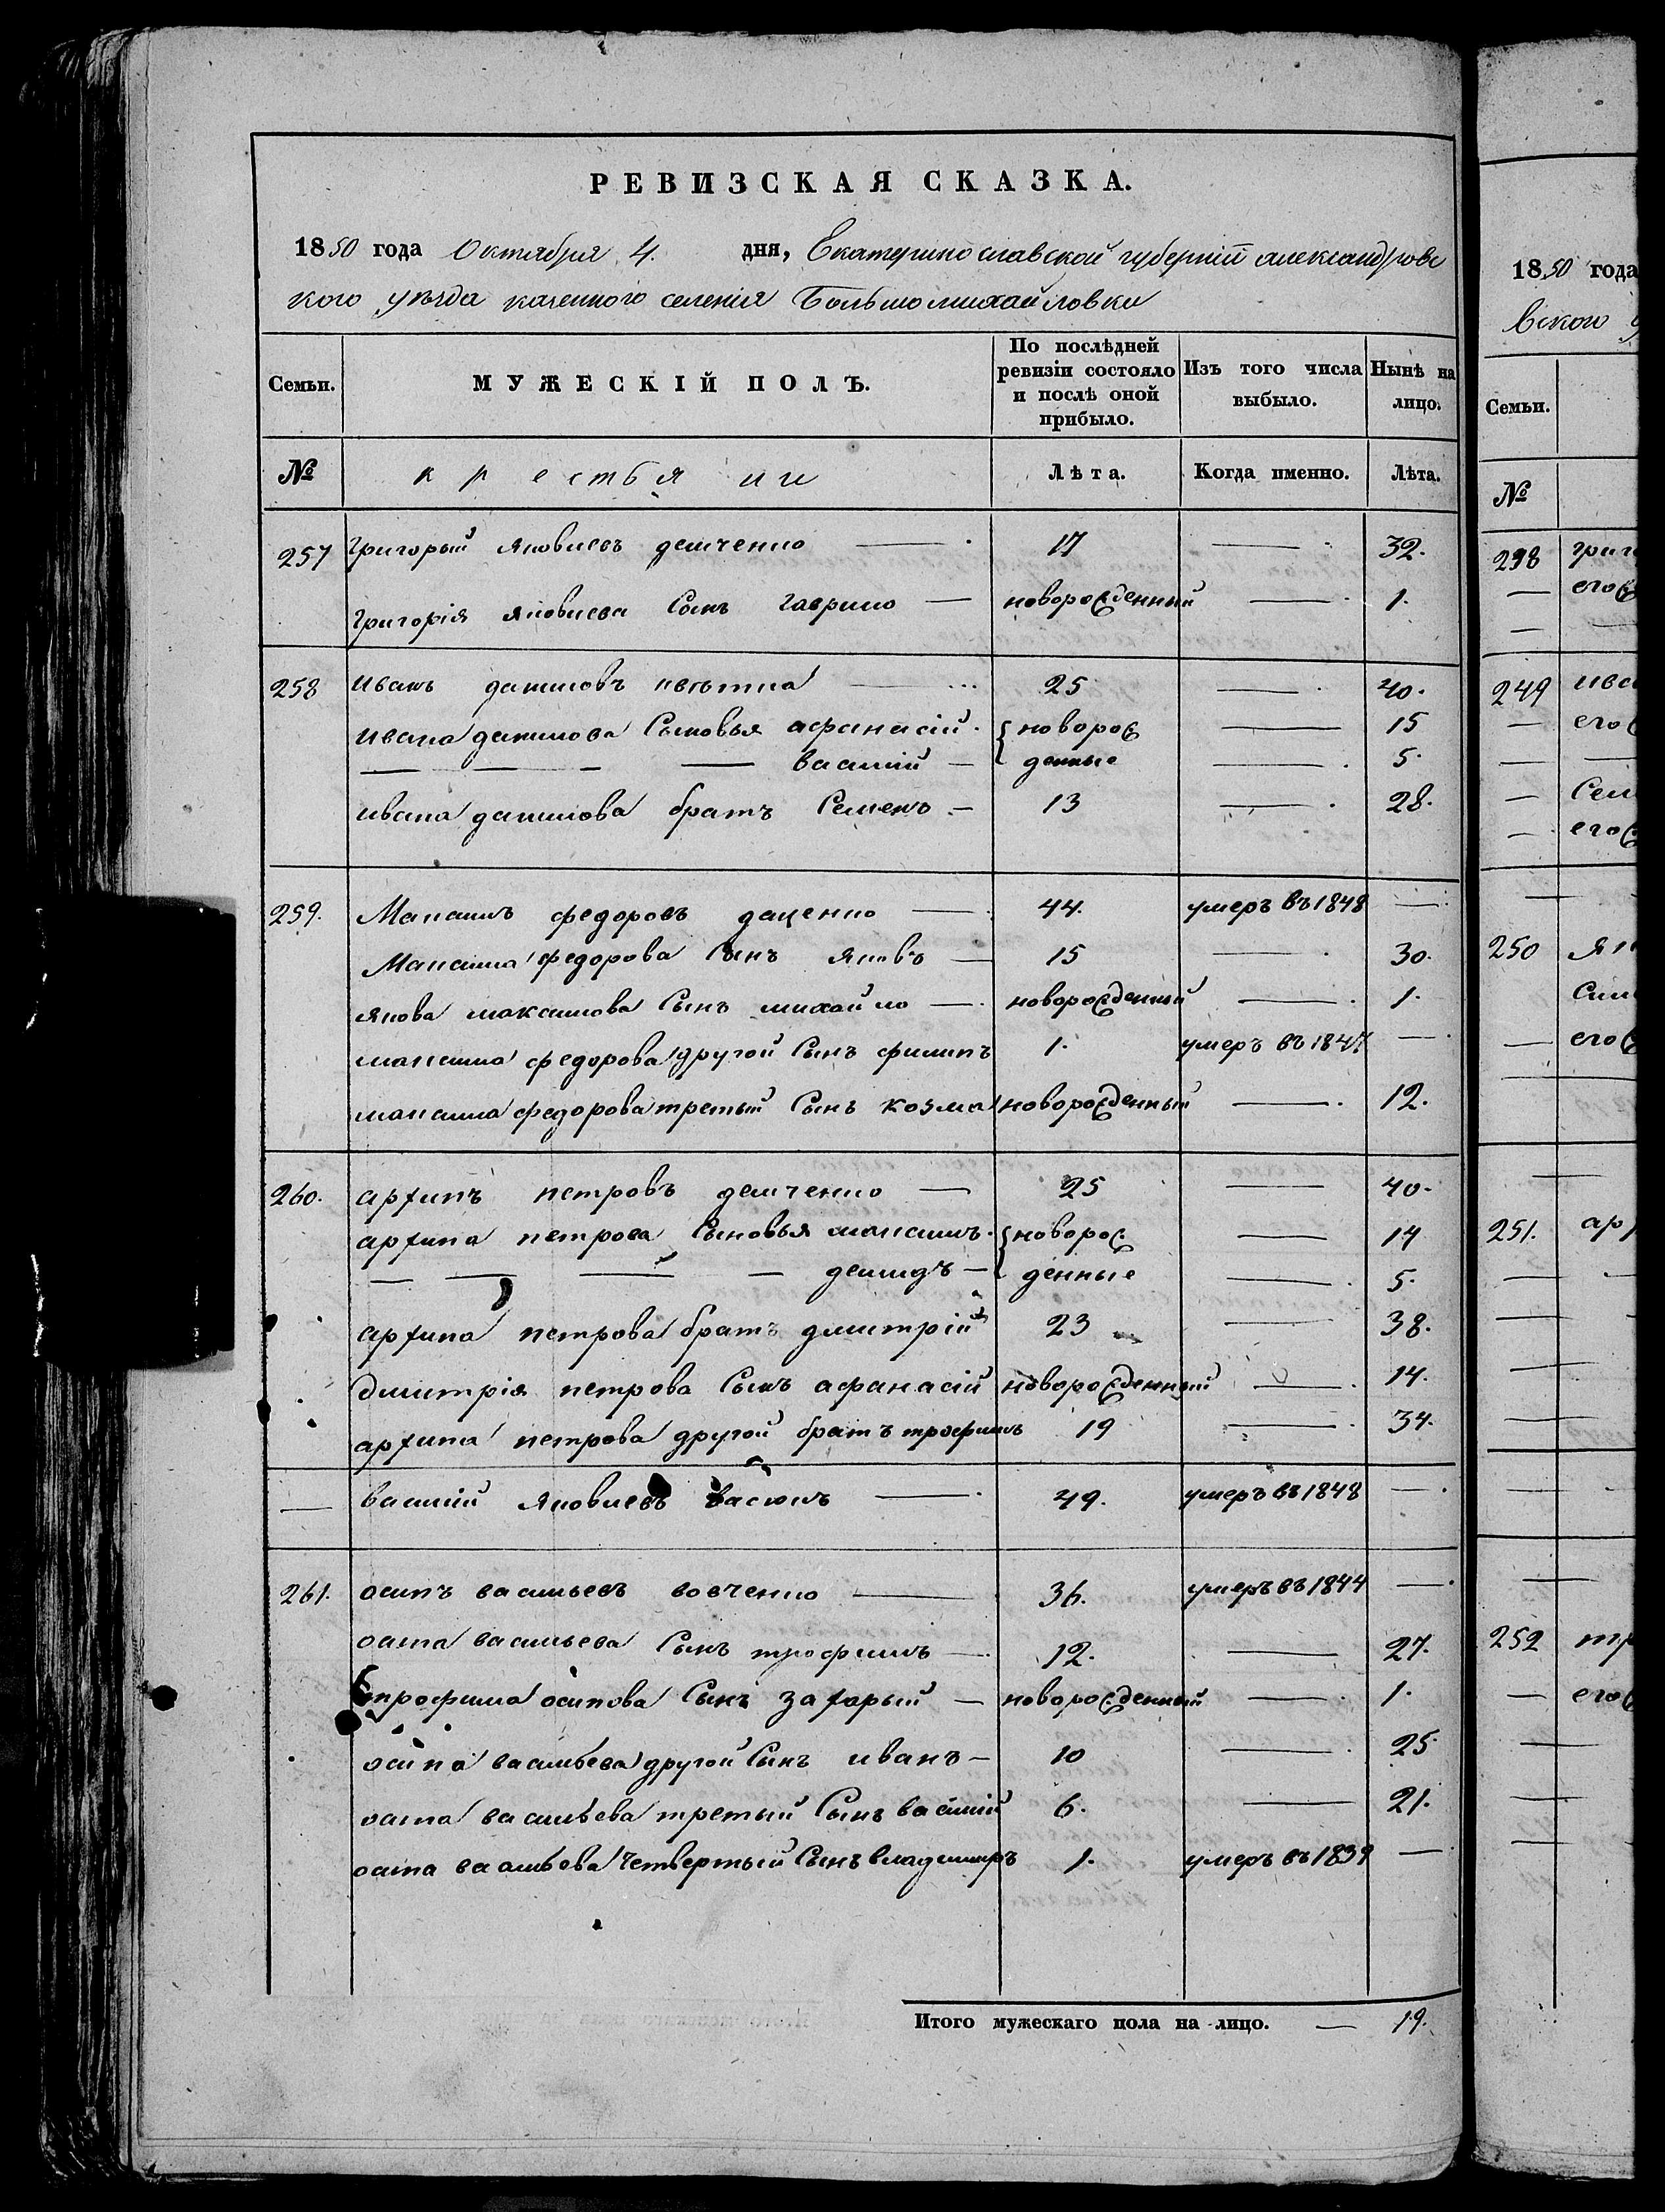 РЕВИЗСКАЯ СКАЗКА.
1850 года Октября 4. дня, Екатеринославской губерніи александровс
кого уѣзда казенного селенія Большомихайловки
Семьи. МУЖЕСКІЙ ПОЛЪ. По послѣдней ревизіи состояло и послѣ оной прибыло. Изъ того числа выбыло. Нынѣ на лицо.
№ крестьяни Лѣта. Когда именно. Лѣта.
257 Григорый Яковлевъ демченко — 17 — 32.
Григорія Яковлева Сынъ Гаврило — новорожденный — 1.
258 иванъ даниловъ — 25 — 40.
ивана данилова Сыновья афанасій. { новорож — 15
— — — — василій — { денные — 5.
ивана данилова братъ Семенъ — 13 — 28.
259. Максимъ федоровъ даценко — 44. умеръ въ 1848 —
Максима федорова Сынъ Яковъ — 15 — 30.
якова максимова Сынъ михайло — новорожденный — 1.
максима федорова другой Сынъ филипъ 1. умеръ въ 1847 —
максима федорова третый Сынъ козма новорожденный — 12.
260. архипъ петровъ демченко — 25 — 40.
архипа петрова Сыновья максимъ. { новорож — 14
— — — — демидъ — { денные — 5.
архипа петрова братъ дмитрій 23 — 38.
дмитрія петрова Сынъ афанасій новорожденный — 14.
архипа петрова другой братъ трофимъ 19 — 34.
— василій Яковлевъ васюкъ — 49. умеръ въ 1848 —
261. осипъ васильевъ вовченко — 36. умеръ въ 1844 —
осипа васильева Сынъ трофимъ — 12. — 27.
трофима осипова Сынъ захарый — новорожденный — 1.
осипа васильева другой Сынъ иванъ — 10 — 25.
осипа васильева третый Сынъ василій 6. — 21.
осипа васильева Четвертый Сынъ владимиръ 1. умеръ въ 1839 —
Итого мужескаго пола на лицо. — 19.
1850 года
вского
Семьи.
№
249
250
251.
252